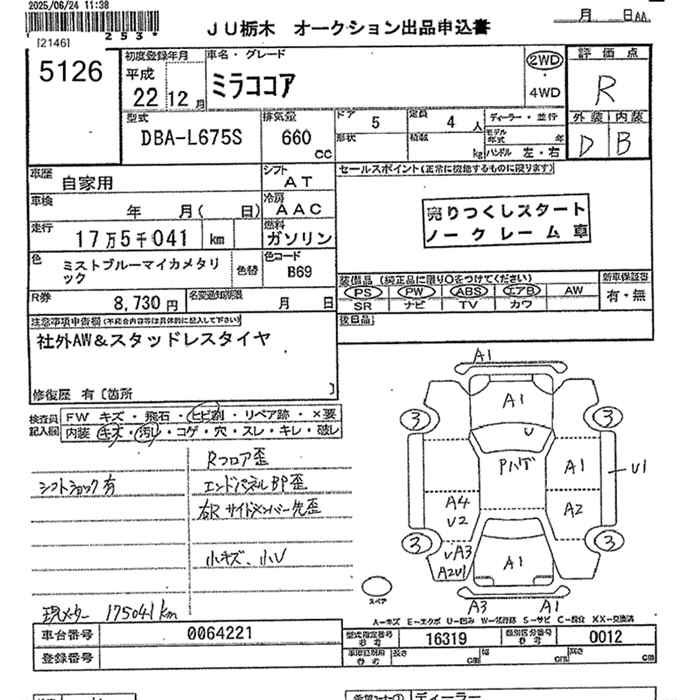 2025/06/24 11:38
[2146]
253*
JU栃木 オークション出品申込書
月 日
5126
初度登録年月
平成
22 12 月
車名・グレード
ミラココア
2WD
4WD
評価点
R
外装 内装
D B
型式
DBA-L675S
排気量
660
CC
ドア 5
定員 4 人
形状
積載 kg
ディーラー・並行
モデル年式 年
ハンドル 左・右
車歴
自家用
シフト
AT
セールスポイント(正常に機能するものに限ります)
売りつくしスタート
ノークレーム車
車検
年 月( 日)
冷房
AAC
走行
17万5千041 km
燃料
ガソリン
色
ミストブルーマイカメタリ
ック
色替
色コード
B69
装備品(純正品に限り○をつけてください)
PS PW ABS エアB AW
SR ナビ TV カワ
新車保証書
有・無
R券
8,730 円
名変通知期限
月 日
後日品
注意事項申告欄(不具合内容等は具体的に記入して下さい)
社外AW&スタッドレスタイヤ
修復歴 有〔箇所 〕
検査員
記入欄
FW キズ・飛石・ヒビ割・リペア跡・×要
内装 キズ・汚レ・コゲ・穴・スレ・キレ・破レ
シフトショック有
Rフロア歪
エンドパネルBP歪
右Rサイドメンバー先歪
小キズ、小U
現メーター 175041km
A1
A1
U
3
3
Pハゲ
A1
U1
A4
U2
A2
3
3
UA3
A2U1
A1
スペア
A3
A1
A-キズ E-エクボ U-凹み W-波修跡 S-サビ C-腐食 XX-交換済
車台番号
0064221
型式指定番号
参考
16319
類別区分番号
参考
0012
登録番号
車体諸元用
参考
長さ cm
幅 cm
高さ cm
ディーラー